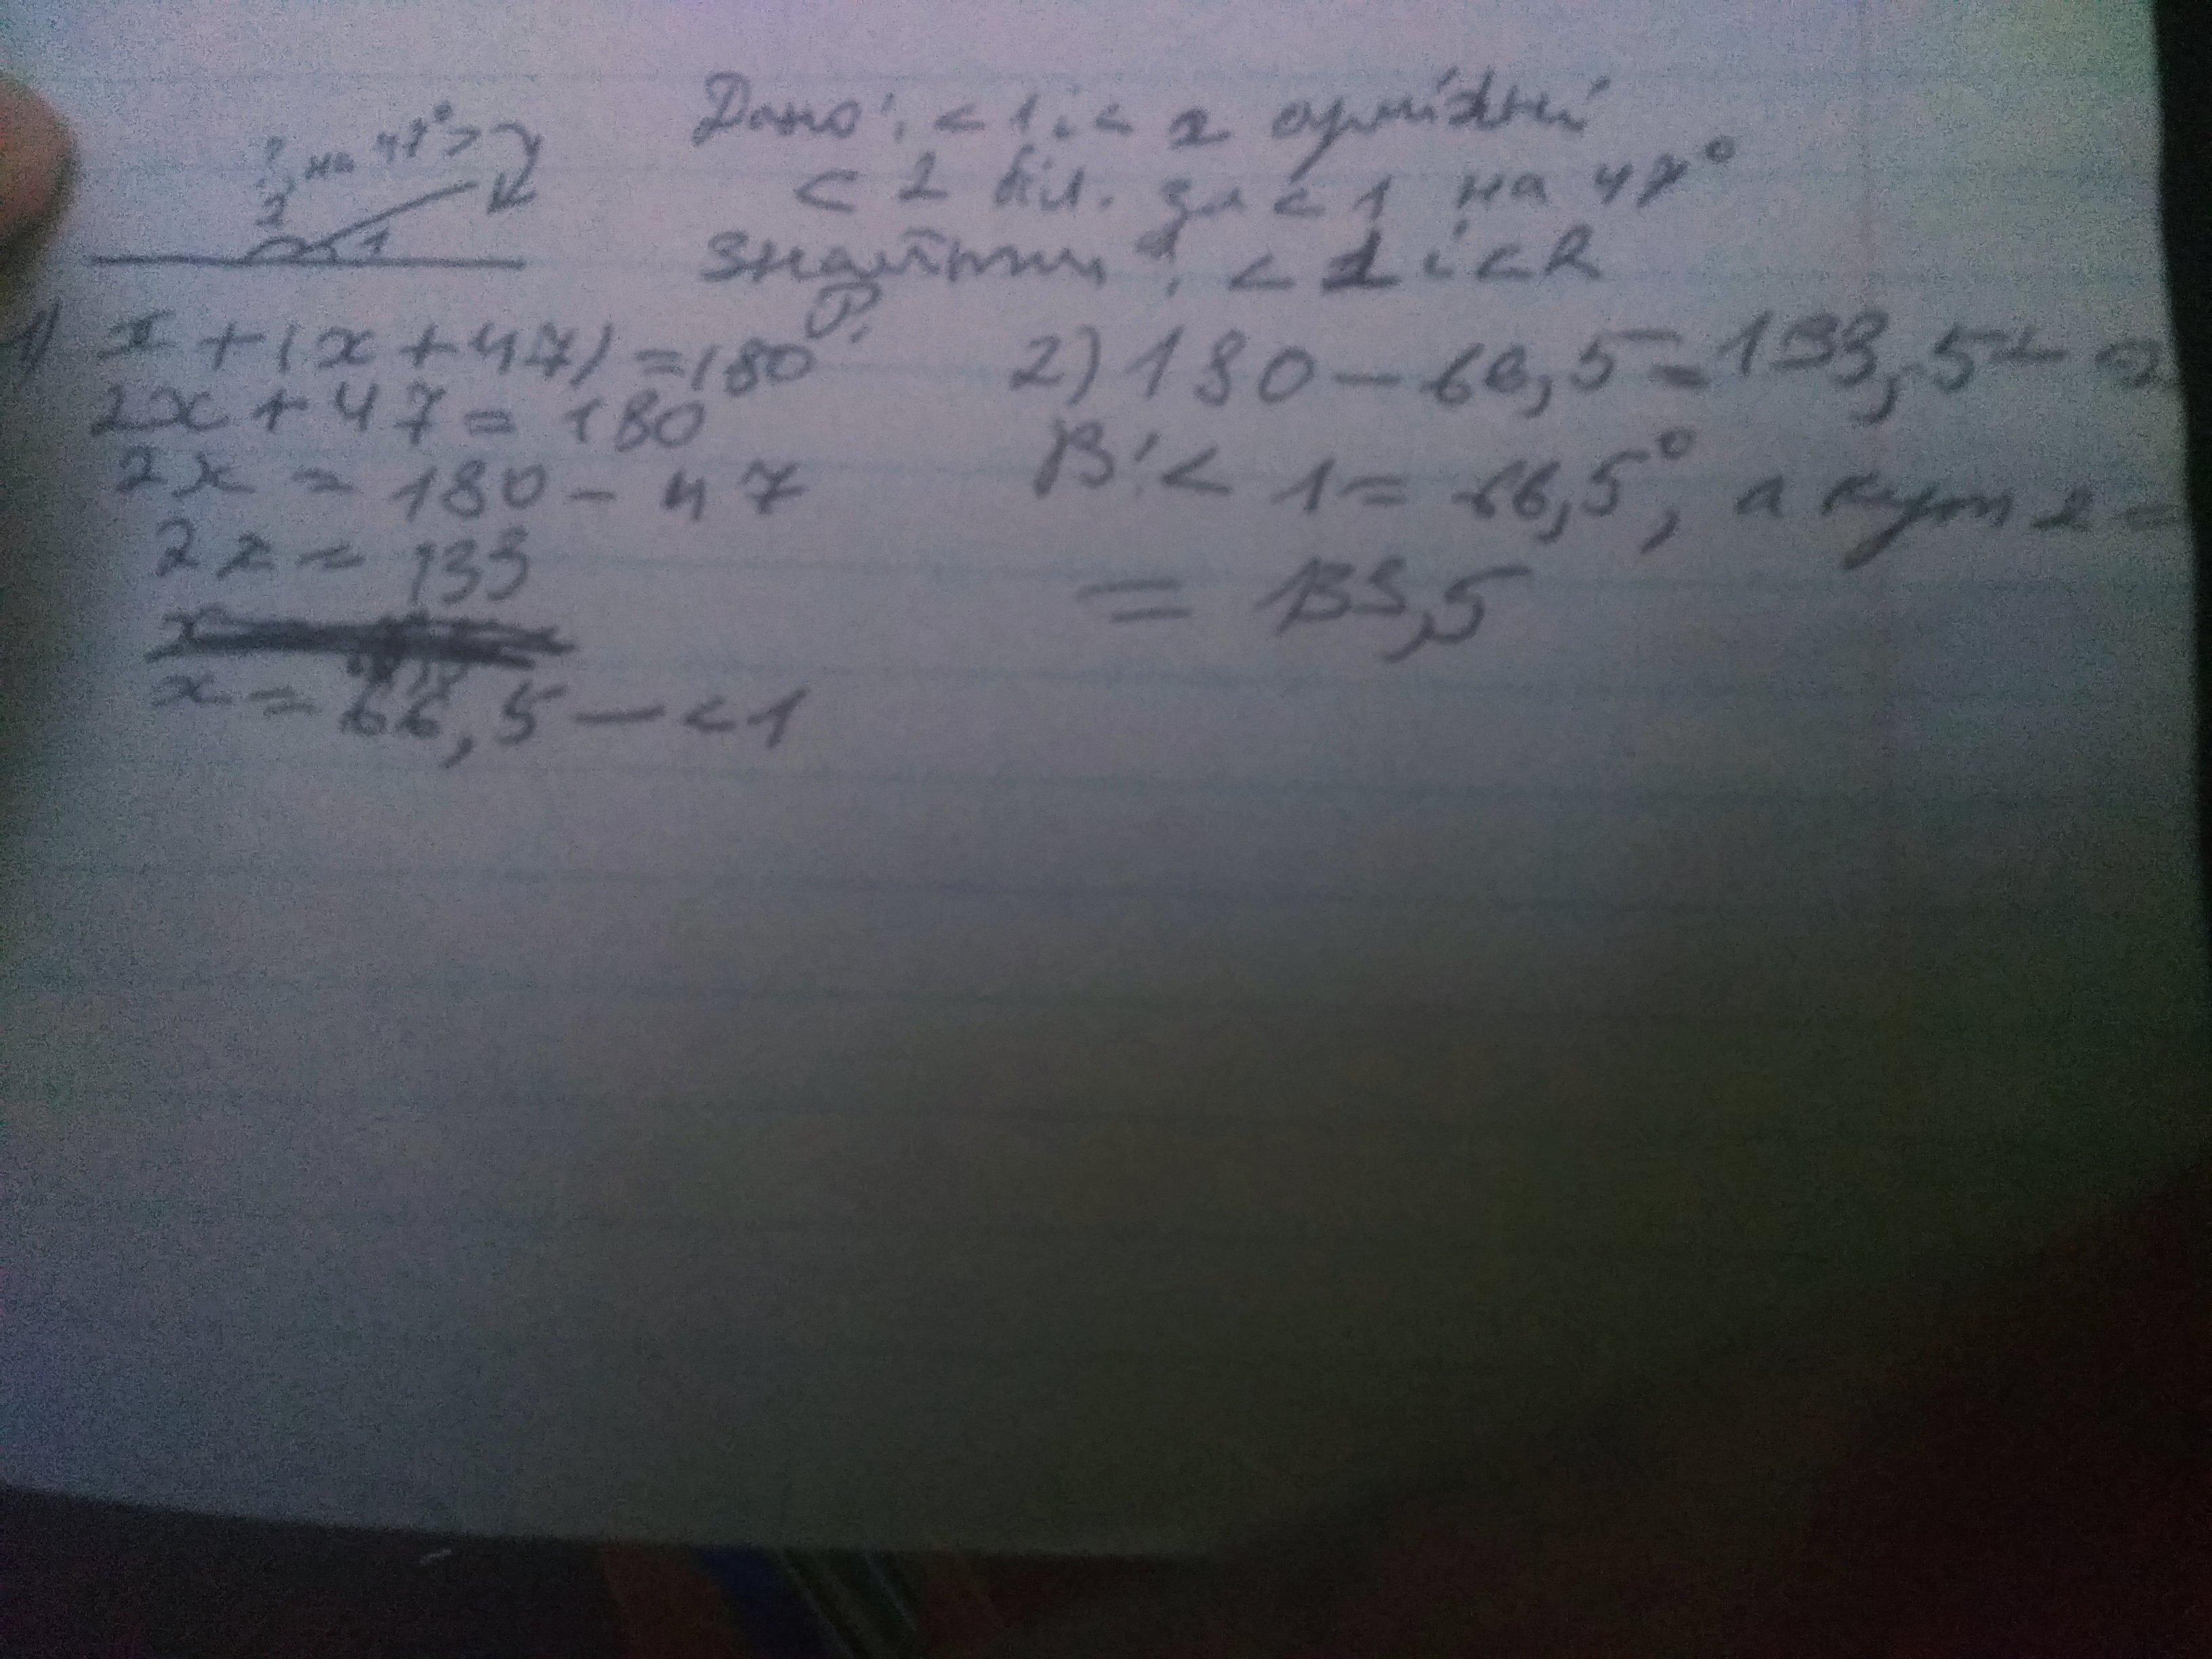 ? на 47° >
2 1
Дано: < 1 і < 2 суміжні
< 2 біл. за < 1 на 47°
Знайти: < 1 і < 2
Р.
1) x + (x + 47) = 180
2x + 47 = 180
2x = 180 - 47
2x = 133
x = 66,5 - < 1
2) 180 - 66,5 = 133,5 - 2
В: < 1 = 66,5°, а кут 2 =
= 133,5